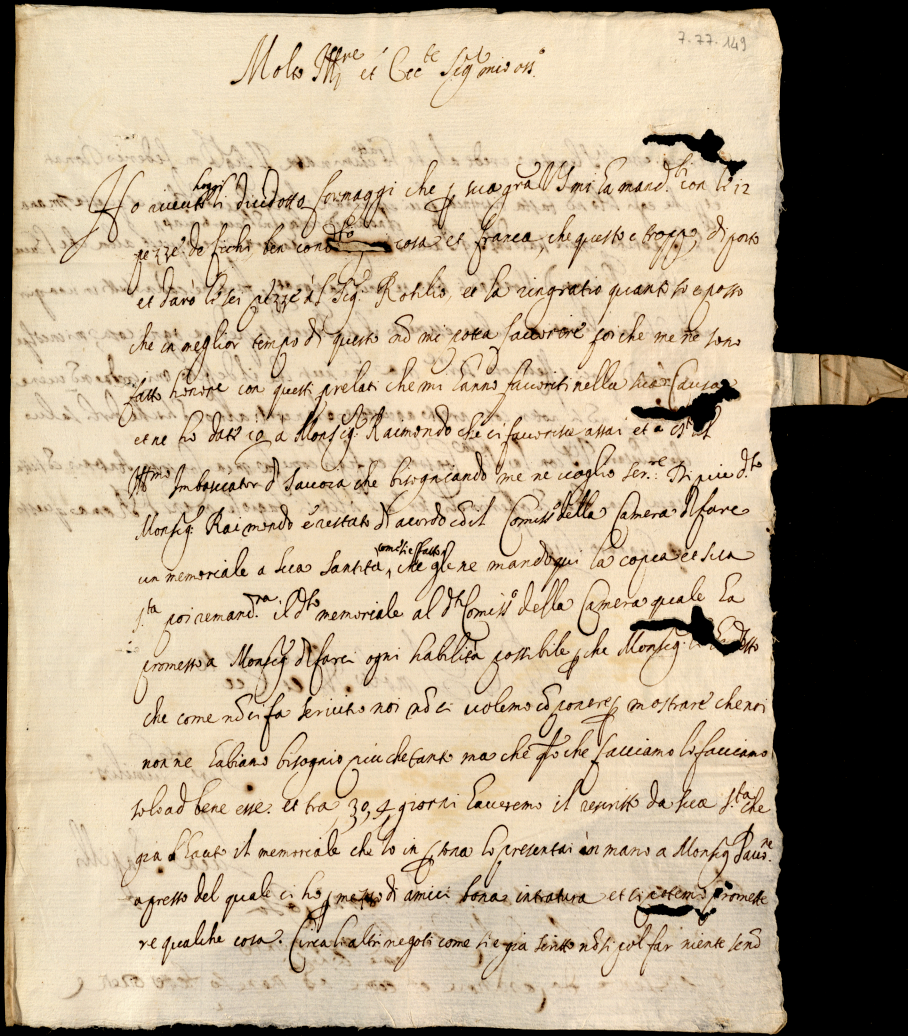 7.77.149
Molto Ill.re et Ecc.te Sig.r mio oss.o
Ho riceuto hoggi li diedotto formaggi che p sua gra VS mi ha mand.o con li 12
pezze de fichi ben cond.to cosa et franca, che questo e troppo, di porto
et daro li sei pezze al Sig.r Rotilio, et la ringratio quanto so e posso
che in meglior tempo di questo nō mi potea favorire poi che me ne sono
fatto honore con questi prelati che mi hanno favoriti nella sua Causa
et ne ho dato 10 a Monsig.r Raimondo che ci favorisce assai et a
Ill.mo Imbasciator d Savoia che bisogniando me ne voglio ser.re. Di piu d.to
Monsig.r Raimondo è restato di acordo cō il Comiss.o della Camera di fare
un memoriale a sua Santita, come si e fatto che gle ne mando qui la copea et sua
S.ta poi remand.ra il d.to memoriale al d.to Comiss.o della Camera quale ha
promesso a Monsig.r di farci ogni habilita possibile p che Monsig.r
che come nō ci fa servitio noi nō ci volemo cōponere p mostrare che noi
non ne habiamo bisognio piu che tanto ma che q.lo che facciamo lo facciamo
solo ad bene esse. et tra, 30, 4, giorni haveremo il rescritto da sua S.ta che
gia l'hauto il memoriale che lo in p.sona lo presentai in mano a Monsig.r
apresso del quale ci ho p mezzo di amici bona intratura et ci potemo promette
re qualche cosa. Circa li altri negoti come si e gia scritto nō si pol far niente senō